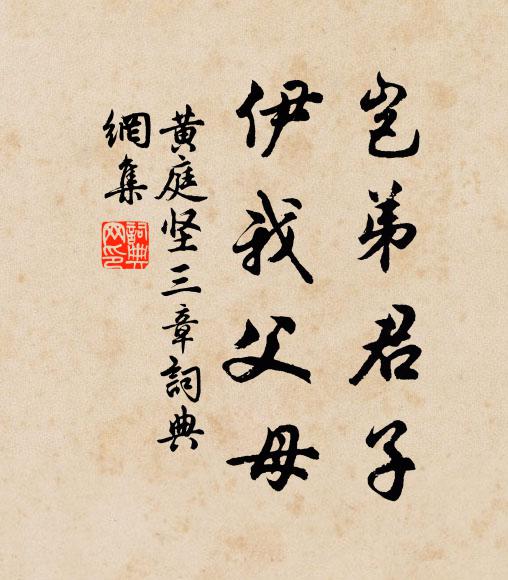 岂弟君子
伊我父母
黄庭坚三章詞典
網集
詞典网印